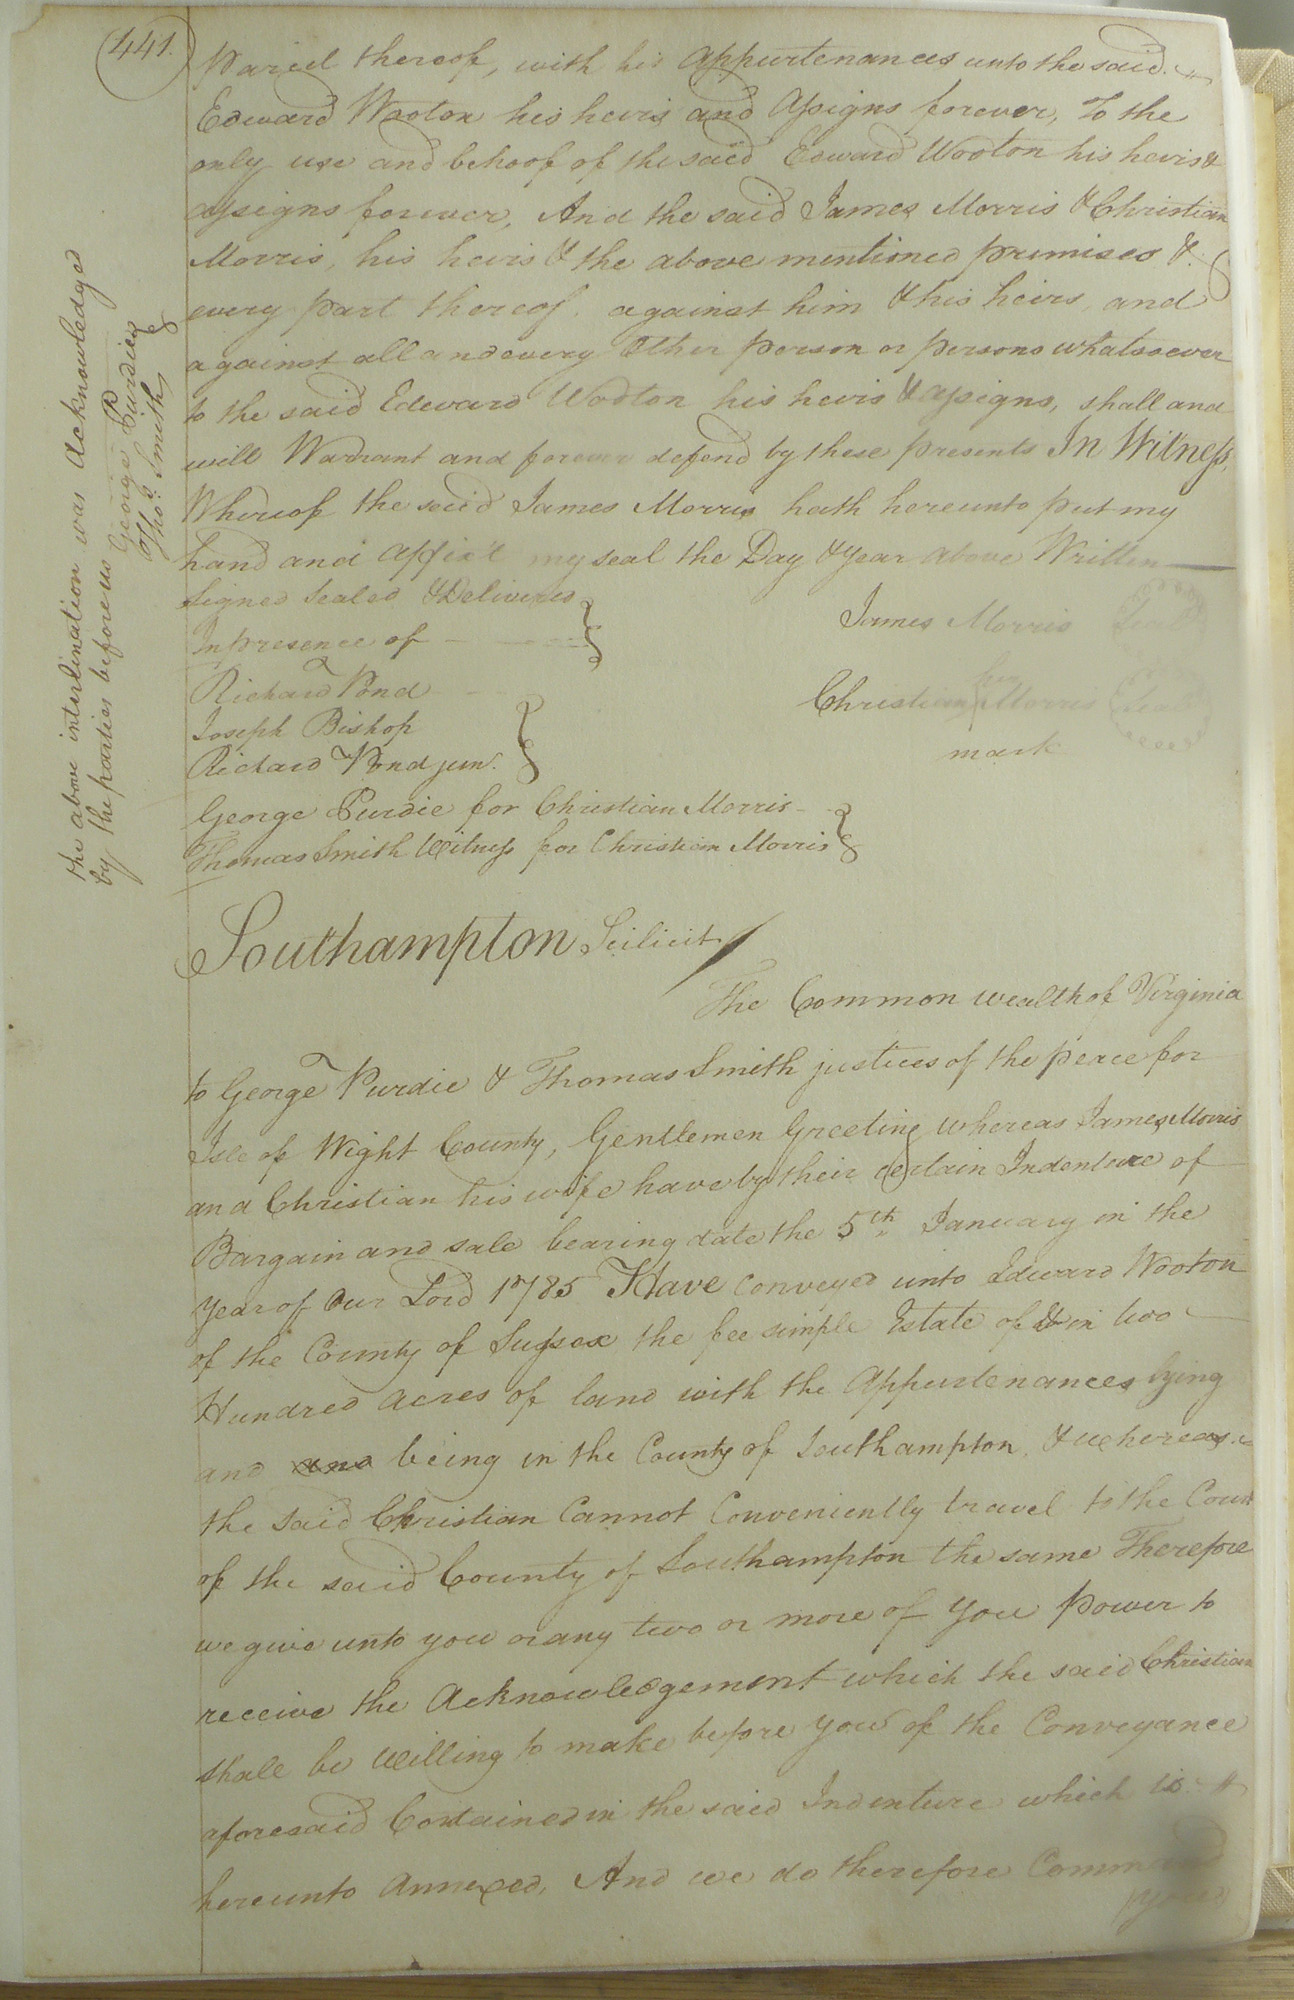 441.
Parcel thereof, with his appurtenances unto the said
Edward Wooton his heirs and Assigns forever, To the
only use and behoof of the said Edward Wooton his heirs &
assigns forever, And the said James Morris & Christian
Morris, his heirs & the above mentioned premises &
every part thereof against him & his heirs and
against all and every Other person or persons whatsoever
to the said Edward Wooton his heirs & assigns, shall and
will Warrant and forever defend by these presents In Witness,
Whereof the said James Morris hath hereunto put my
hand and affix't my seal the Day & Year above Written
Signed Sealed & Delivered
In presence of
James Morris Seal
Richard Pond
her
Christian Morris Seal
mark
Joseph Bishop
Richard Pond jun.
George Purdie for Christian Morris
Thomas Smith Witness for Christian Morris
the above interlination was Acknowledged
by the parties before us George Purdie
Thos. Smith
Southampton Scilicit
The Common wealth of Virginia
to George Purdie & Thomas Smith justices of the peace for
Isle of Wight County, Gentlemen Greeting whereas James Morris
and Christian his wife have by their certain Indenture of
Bargain and sale bearing date the 5th. January in the
year of Our Lord 1785 Have conveyed unto Edward Wooton
of the County of Sussex the fee simple Estate of & in two
Hundred acres of land with the Appurtenances lying
and and being in the County of Southampton, & whereas
the said Christian Cannot Conveniently travel to the Court
of the said County of Southampton the same Therefore
we give unto you or any two or more of You power to
receive the Acknowledgement which the said Christian
shall be Willing to make before you of the Conveyance
aforesaid Contained in the said Indenture which is
hereunto Annexed, And we do therefore Command
you